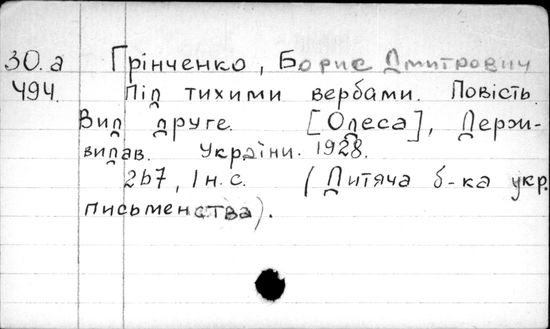 30.а Грінченко, Борис Дмитрович
494. Під тихими вербами. Повість.
Вид друге. [Одеса], Держ-
видав. України. 1928.
267, 1 н. с. (Дитяча б-ка укр.
письменства).